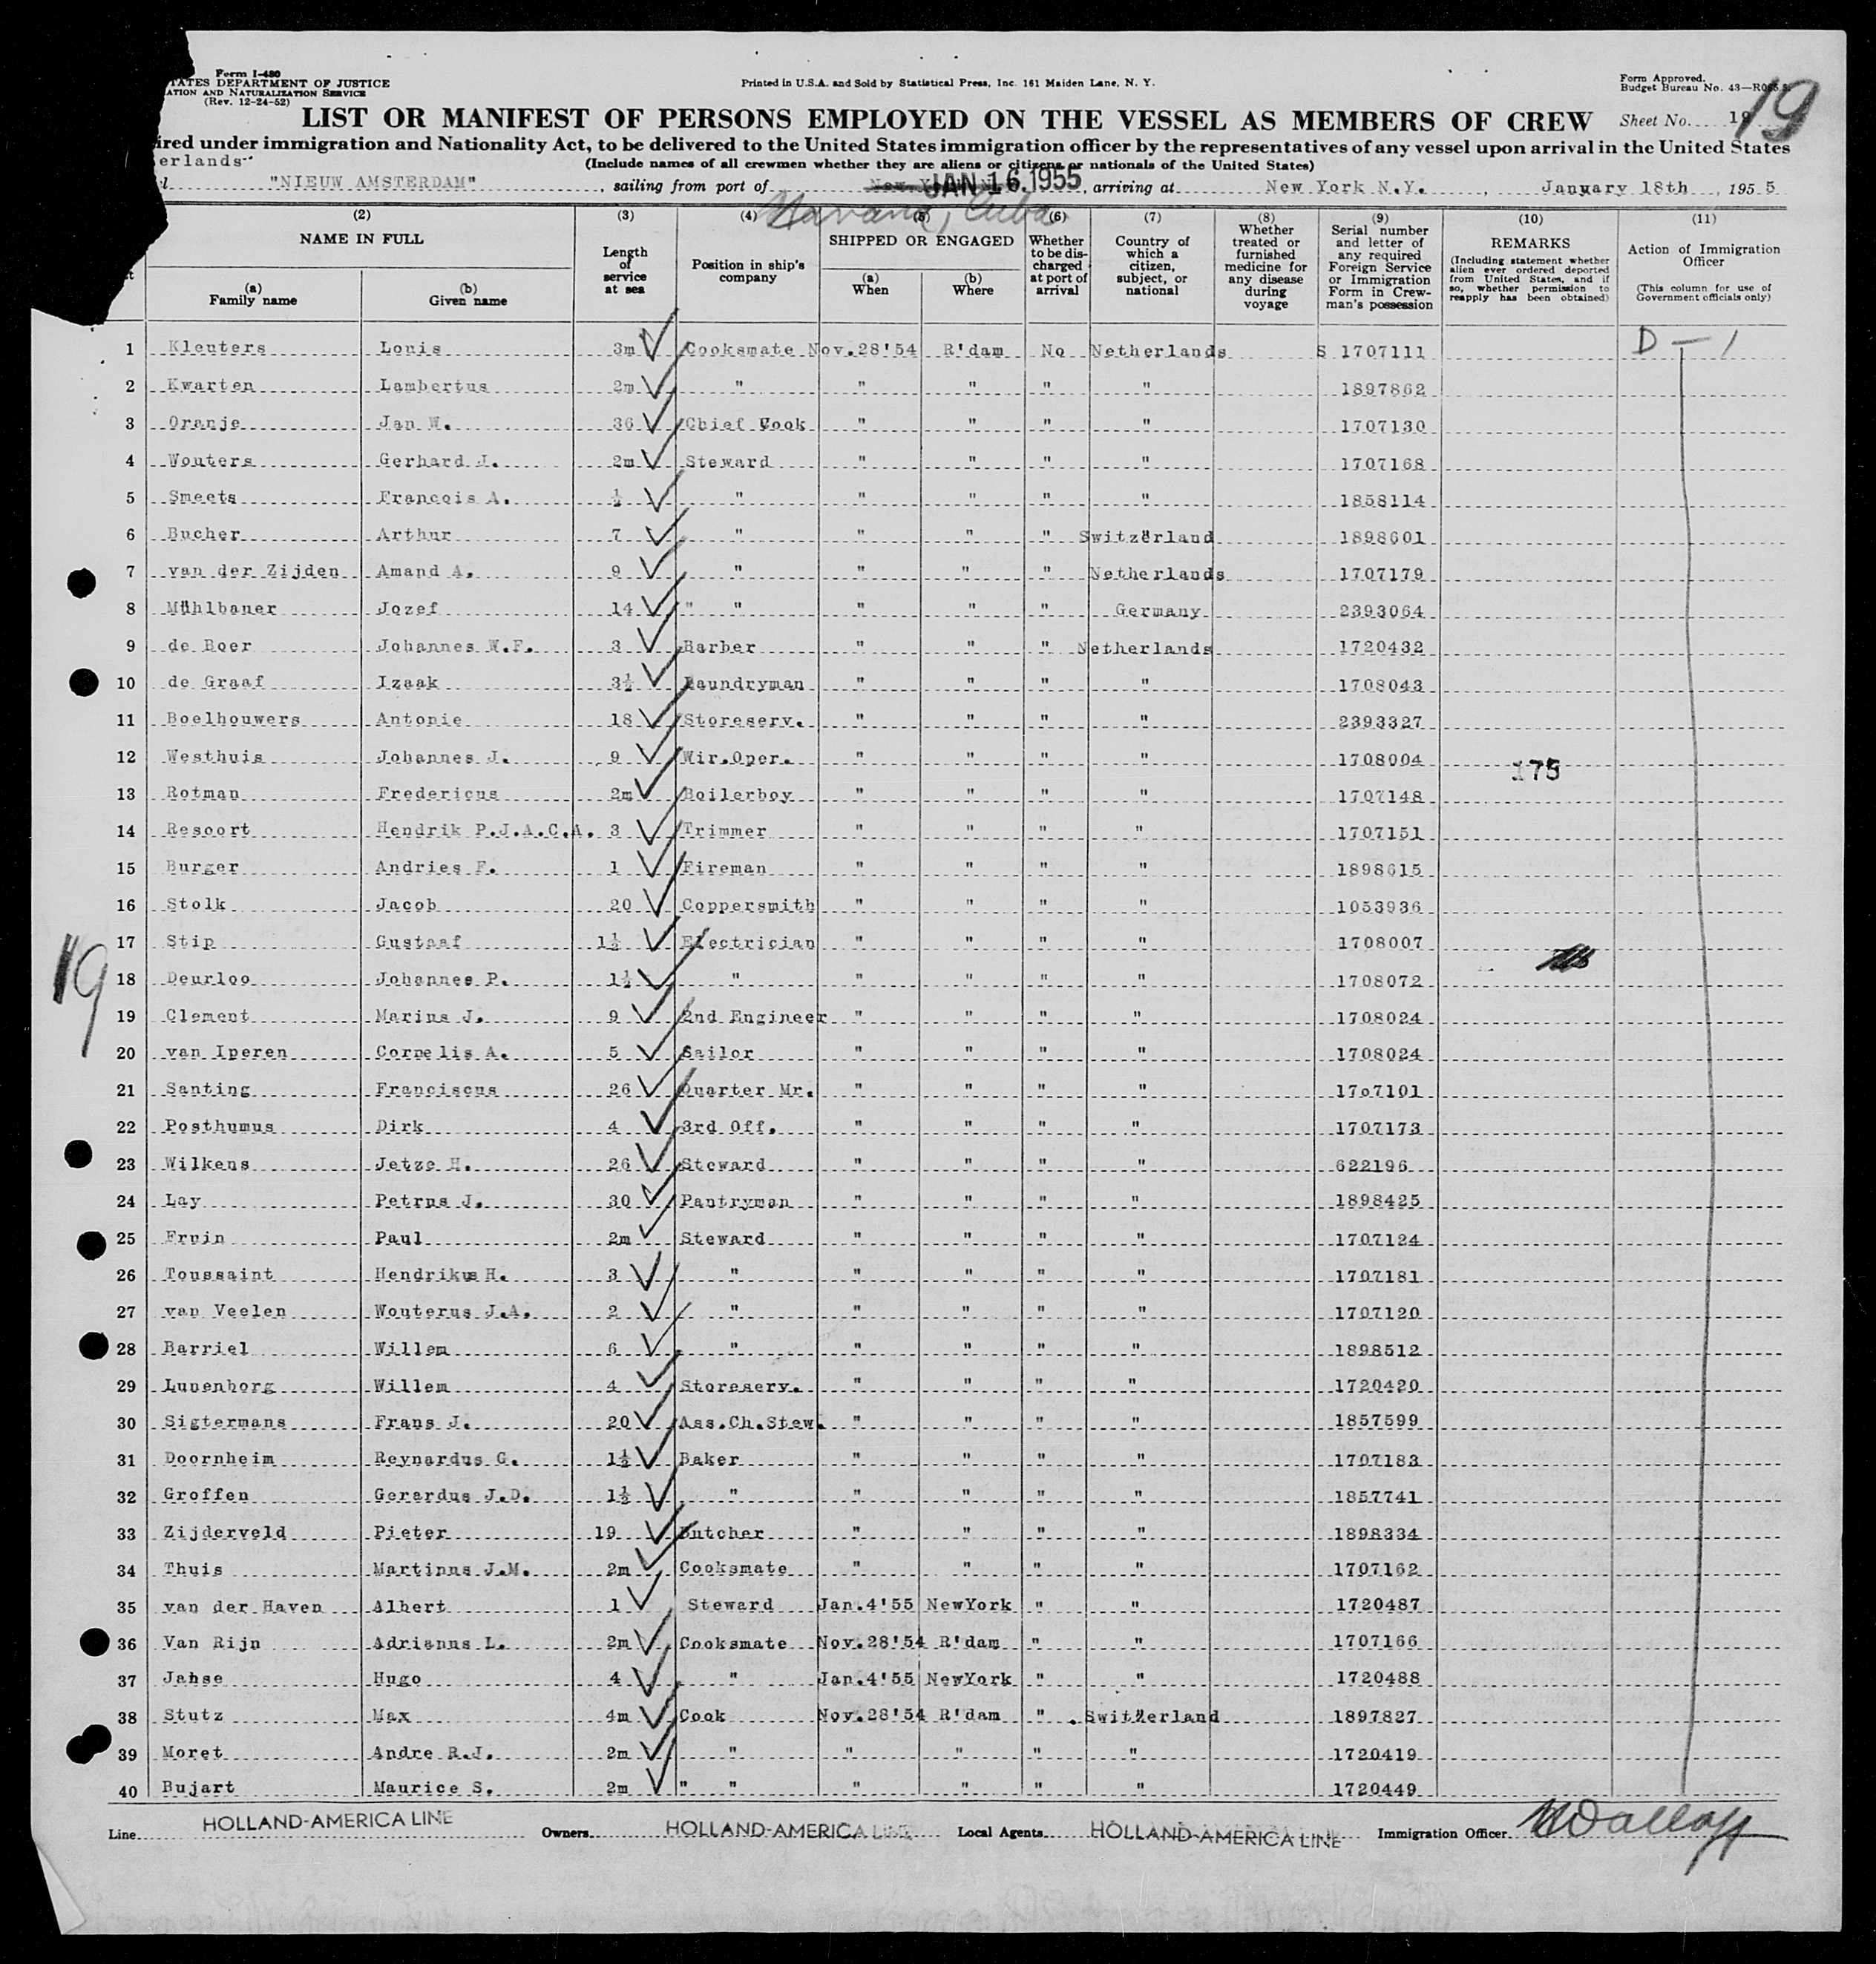 Form I-480
TATES DEPARTMENT OF JUSTICE
ATION AND NATURALIZATION SERVICE
(Rev. 12-24-52)
Printed in U.S.A. and Sold by Statistical Press, Inc. 161 Maiden Lane, N. Y.
Form Approved.
Budget Bureau No. 43—R065.
LIST OR MANIFEST OF PERSONS EMPLOYED ON THE VESSEL AS MEMBERS OF CREW
Sheet No. 19
19
ired under immigration and Nationality Act, to be delivered to the United States immigration officer by the representatives of any vessel upon arrival in the United States
erlands
(Include names of all crewmen whether they are aliens or citizens or nationals of the United States)
"NIEUW AMSTERDAM", sailing from port of JAN 16 1955, arriving at New York N.Y., January 18th, 1955
Havana, Cuba
(2) (3) (4) (5) (6) (7) (8) (9) (10) (11)
NAME IN FULL
(a) Family name
(b) Given name
Length of service at sea
Position in ship's company
SHIPPED OR ENGAGED
(a) When
(b) Where
Whether to be discharged at port of arrival
Country of which a citizen, subject, or national
Whether treated or furnished medicine for any disease during voyage
Serial number and letter of any required Foreign Service or Immigration Form in Crewman's possession
REMARKS
(Including statement whether alien ever ordered deported from United States, and if so, whether permission to reapply has been obtained)
Action of Immigration Officer
(This column for use of Government officials only)
1 Kleuters Louis 3m Cooksmate Nov.28'54 R'dam No Netherlands S 1707111 D — 1
2 Kwarten Lambertus 2m " " " " " 1897862
3 Oranje Jan W. 36 Chief Cook " " " " 1707130
4 Wouters Gerhard J. 2m Steward " " " " 1707168
5 Smeets Francois A. ½ " " " " " 1858114
6 Bucher Arthur 7 " " " " Switzerland 1898601
7 van der Zijden Amand A. 9 " " " " Netherlands 1707179
8 Mühlbauer Jozef 14 " " " " " Germany 2393064
9 de Boer Johannes W.F. 3 Barber " " " Netherlands 1720432
10 de Graaf Izaak 3½ Laundryman " " " " 1708043
11 Boelhouwers Antonie 18 Storeserv. " " " " 2393327
12 Westhuis Johannes J. 9 Wir.Oper. " " " " 1708004
175
13 Rotman Fredericus 2m Boilerboy " " " " 1707148
14 Resoort Hendrik P.J.A.C.A. 3 Trimmer " " " " 1707151
15 Burger Andries F. 1 Fireman " " " " 1898615
16 Stolk Jacob 20 Coppersmith " " " " 1053936
17 Stip Gustaaf 1½ Electrician " " " " 1708007
19
18 Deurloo Johannes P. 1½ " " " " " 1708072
19 Clement Marius J. 9 2nd Engineer " " " " 1708024
20 van Iperen Cornelis A. 5 Sailor " " " " 1708024
21 Santing Franciscus 26 Quarter Mr. " " " " 17o7101
22 Posthumus Dirk 4 3rd Off. " " " " 1707173
23 Wilkens Jetze H. 26 Steward " " " " 622196
24 Lay Petrus J. 30 Pantryman " " " " 1898425
25 Fruin Paul 2m Steward " " " " 1707124
26 Toussaint Hendrikus H. 3 " " " " " 1707181
27 van Veelen Wouterus J.A. 2 " " " " " 1707120
28 Barriel Willem 6 " " " " " 1898512
29 Lunenborg Willem 4 Storeserv. " " " " 1720420
30 Sigtermans Frans J. 20 Ass.Ch.Stew. " " " " 1857599
31 Doornheim Reynardus G. 1½ Baker " " " " 1707183
32 Groffen Gerardus J.D. 1½ " " " " " 1857741
33 Zijderveld Pieter 19 Butcher " " " " 1898334
34 Thuis Martinus J.M. 2m Cooksmate " " " " 1707162
35 van der Haven Albert 1 Steward Jan.4'55 NewYork " " 1720487
36 Van Rijn Adrianus L. 2m Cooksmate Nov.28'54 R'dam " " 1707166
37 Jahse Hugo 4 " Jan.4'55 NewYork " " 1720488
38 Stutz Max 4m Cook Nov.28'54 R'dam " Switzerland 1897827
39 Moret Andre R.J. 2m " " " " " 1720419
40 Bujart Maurice S. 2m " " " " " " 1720449
Line HOLLAND-AMERICA LINE Owners HOLLAND-AMERICA LINE Local Agents HOLLAND-AMERICA LINE Immigration Officer